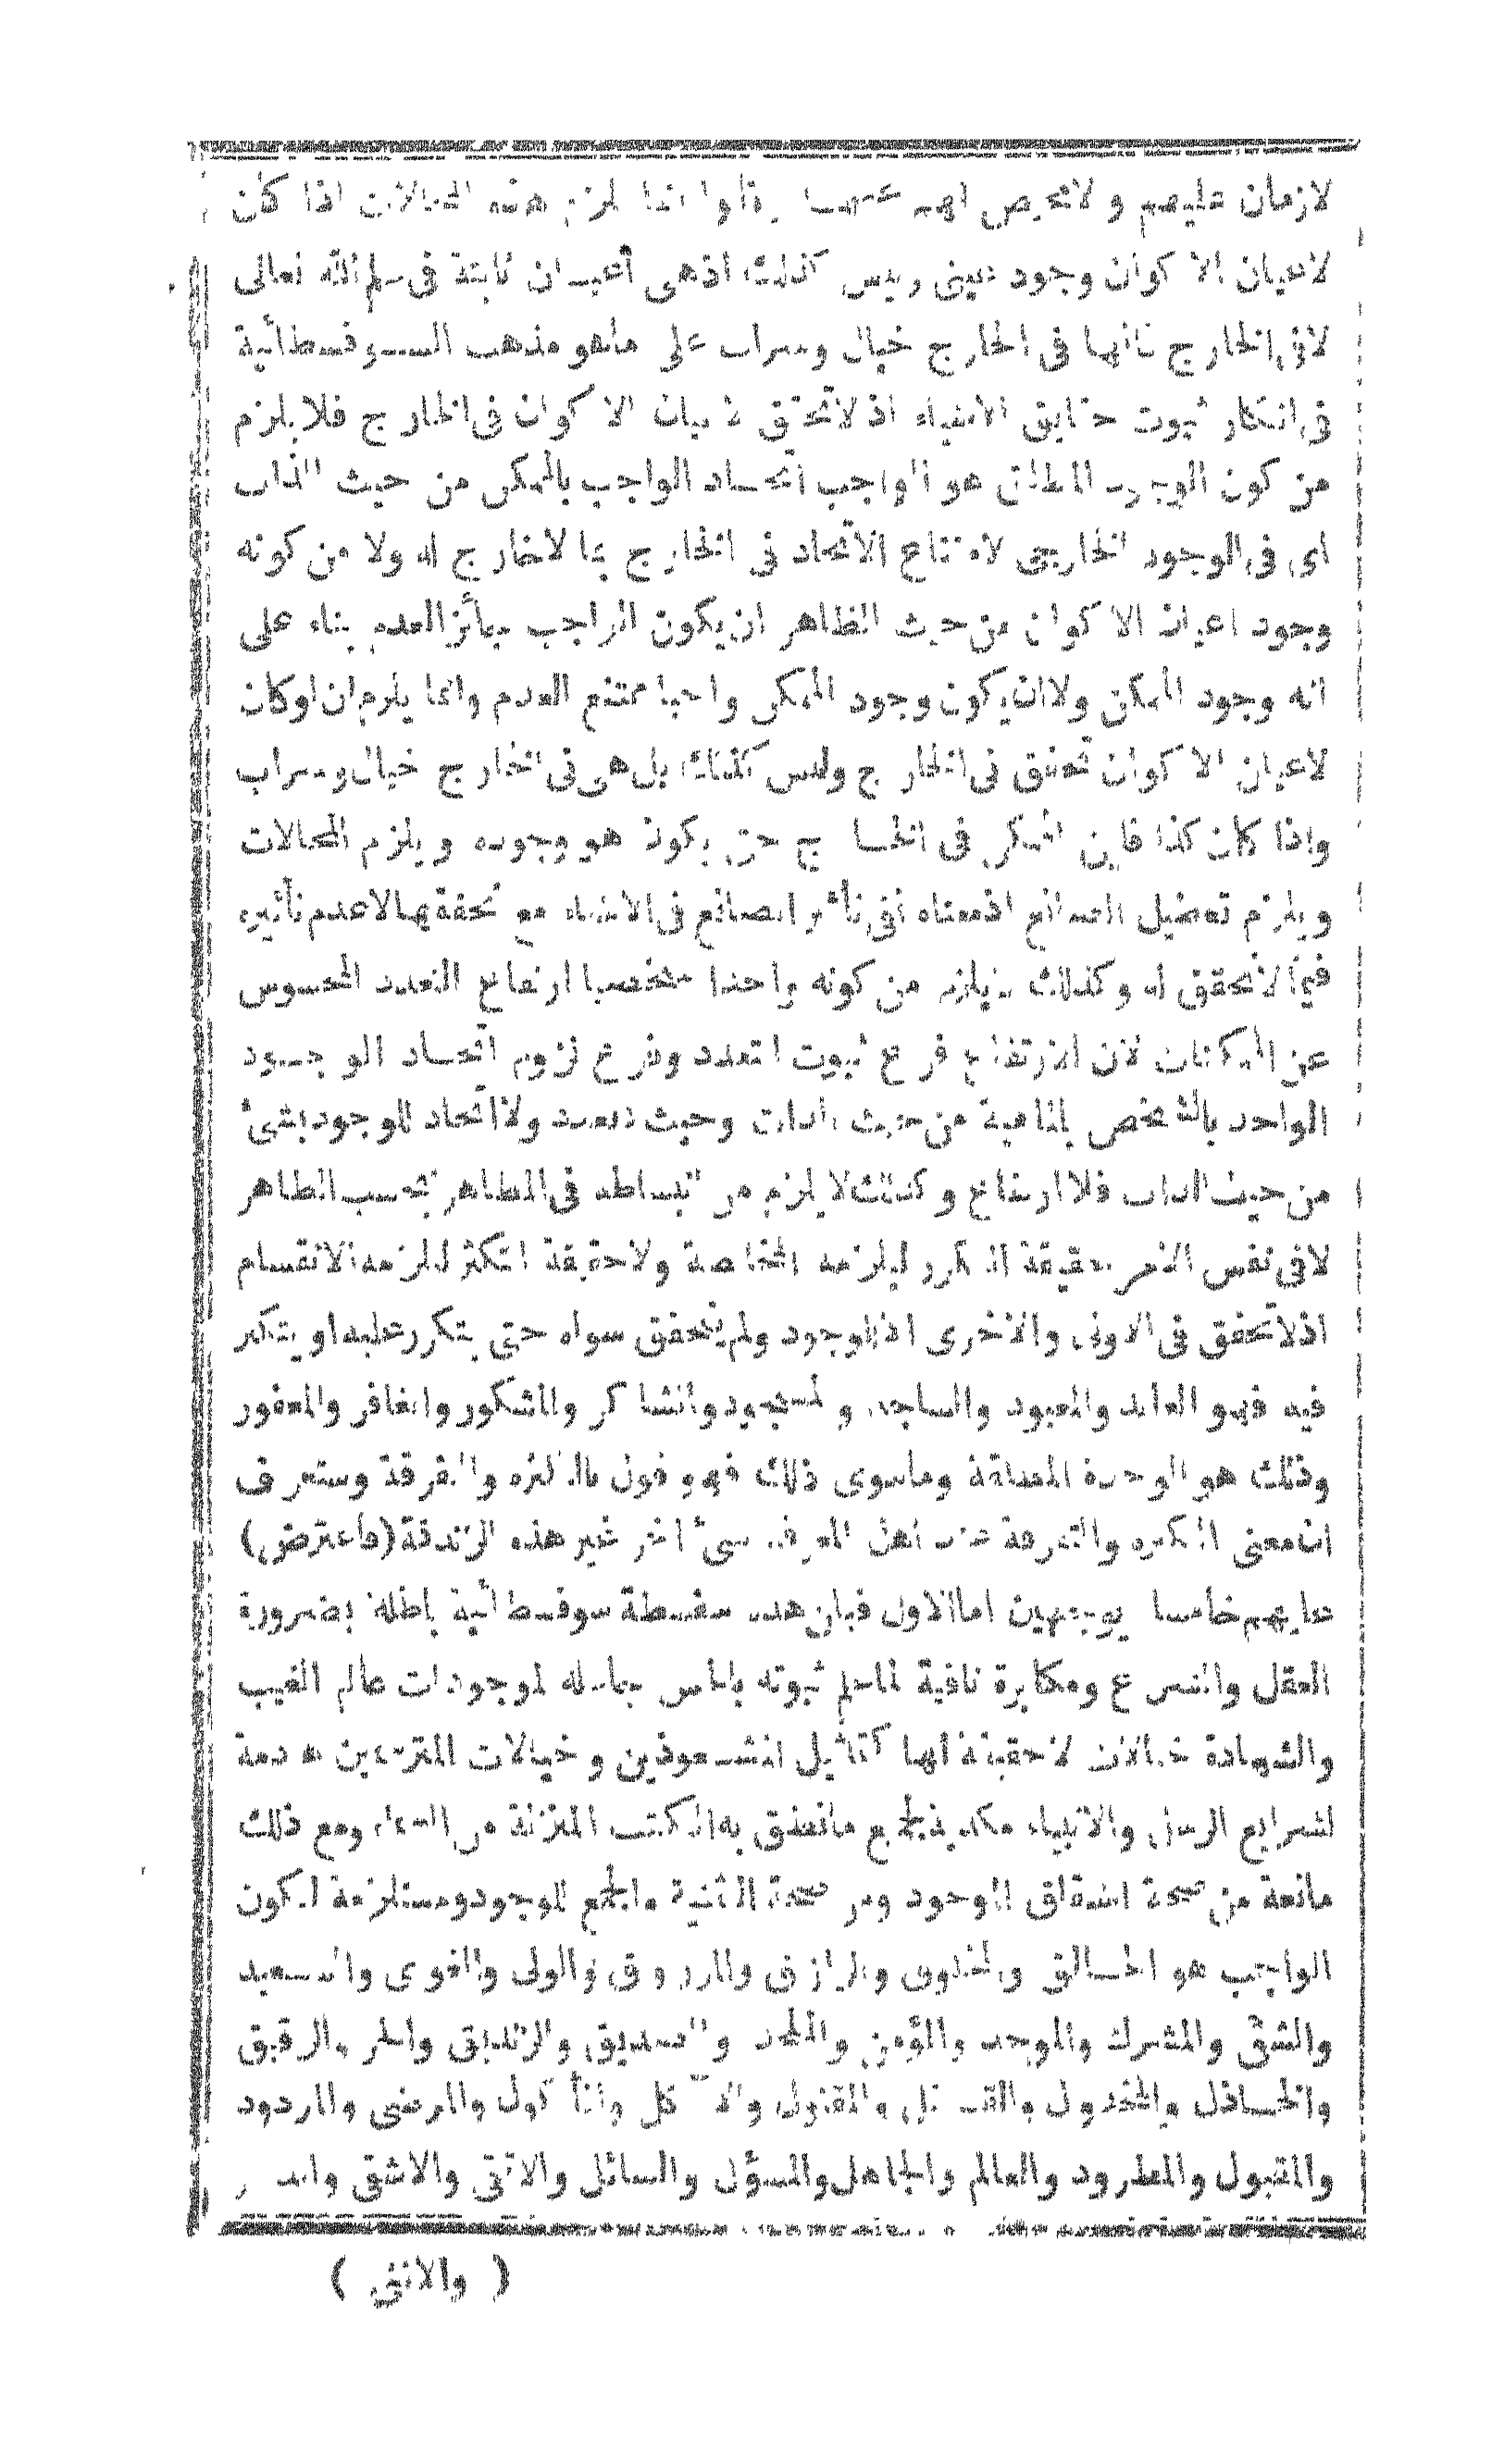 لازمان عليهم ولا محيص لهم عنهما قالوا انما لزم هذه المحالات اذا كان
لاعيان الاكوان وجود عيني وليس كذلك اذ هي أعيان ثابتة في علم الله تعالى
لا في الخارج فانها في الخارج خيال وسراب على ما هو مذهب السوفسطائية
في انكار ثبوت حقايق الاشياء اذ لا تحقق لاعيان الاكوان في الخارج فلا يلزم
من كون الوجود المطلق هو الواجب اتحاد الواجب بالممكن من حيث الذات
اى في الوجود الخارجى لامتناع الاتحاد في الخارج بما لا خارج له ولا من كونه
وجود اعيان الاكوان من حيث الظاهر ان يكون الواجب جائز العدم بناء على
انه وجود الممكن ولا ان يكون وجود الممكن واجبا ممتنع العدم وانما يلزم ان لو كان
لاعيان الاكوان تحقق في الخارج وليس كذلك بل هى في الخارج خيال وسراب
واذا كان كذا فاين الممكن في الخارج حتى يكون هو وجوده ويلزم المحالات
ويلزم تعطيل الصانع اذ معناه نفى تأثير الصانع في الاشياء مع تحققها لا عدم تأثيره
فيما لا تحقق له وكذلك لا يلزم من كونه واحدا شخصيا ارتفاع التعدد المحسوس
عن الممكنات لان الارتفاع فرع ثبوت التعدد وفرع لزوم اتحاد الوجود
الواحد بالشخص بالماهية من حيث الذات وحيث لا تعدد ولا اتحاد للوجود بشئ
من حيث الذات فلا ارتفاع وكذلك لا يلزم من انبساطه في المظاهر بحسب الظاهر
لا في نفس الامر حقيقة التكرر ليلزمه المخالطة ولا حقيقة التكثر ليلزمه الانقسام
اذ لا تحقق في الاولى والاخرى الا للوجود ولم يتحقق سواه حتى يتكرر عليه او يتكثر
فيه فهو العابد والمعبود والساجد والمسجود والشاكر والمشكور والغافر والمغفور
وذلك هو الوحدة المطلقة وما سوى ذلك فهو قول بالكثرة والتفرقة وستعرف
ان معنى الكثرة والتفرقة عند اهل المعرفة شئ آخر غير هذه الزندقة (فاعترض)
عليهم خامسا بوجهين اما الاول فبان هذه سفسطة سوفسطائية باطلة بضرورة
العقل والشرع ومكابرة نافية لما علم ثبوته بالحس جاعلة لموجودات عالم الغيب
والشهادة خيالات لا حقيقة لها كتماثيل المشعوذين وخيالات المترسمين هادمة
لشرايع الرسل والانبياء مكذبة لجميع ما نطق به الكتب المنزلة من السماء ومع ذلك
مانعة من صحة اشتقاق الوجود ومن صحة التثنية والجمع للوجود ومستلزمة لكون
الواجب هو الخالق والمخلوق والرازق والمرزوق والولى والغوى والسعيد
والشقى والمشرك والموحد والمؤمن والملحد والصديق والزنديق والحر والرقيق
والخاذل والمخذول والقاتل والمقتول والآكل والمأكول والمرضى والمردود
والمقبول والمطرود والعالم والجاهل والمسؤل والسائل والاتقى والاشقى
( والانثى )